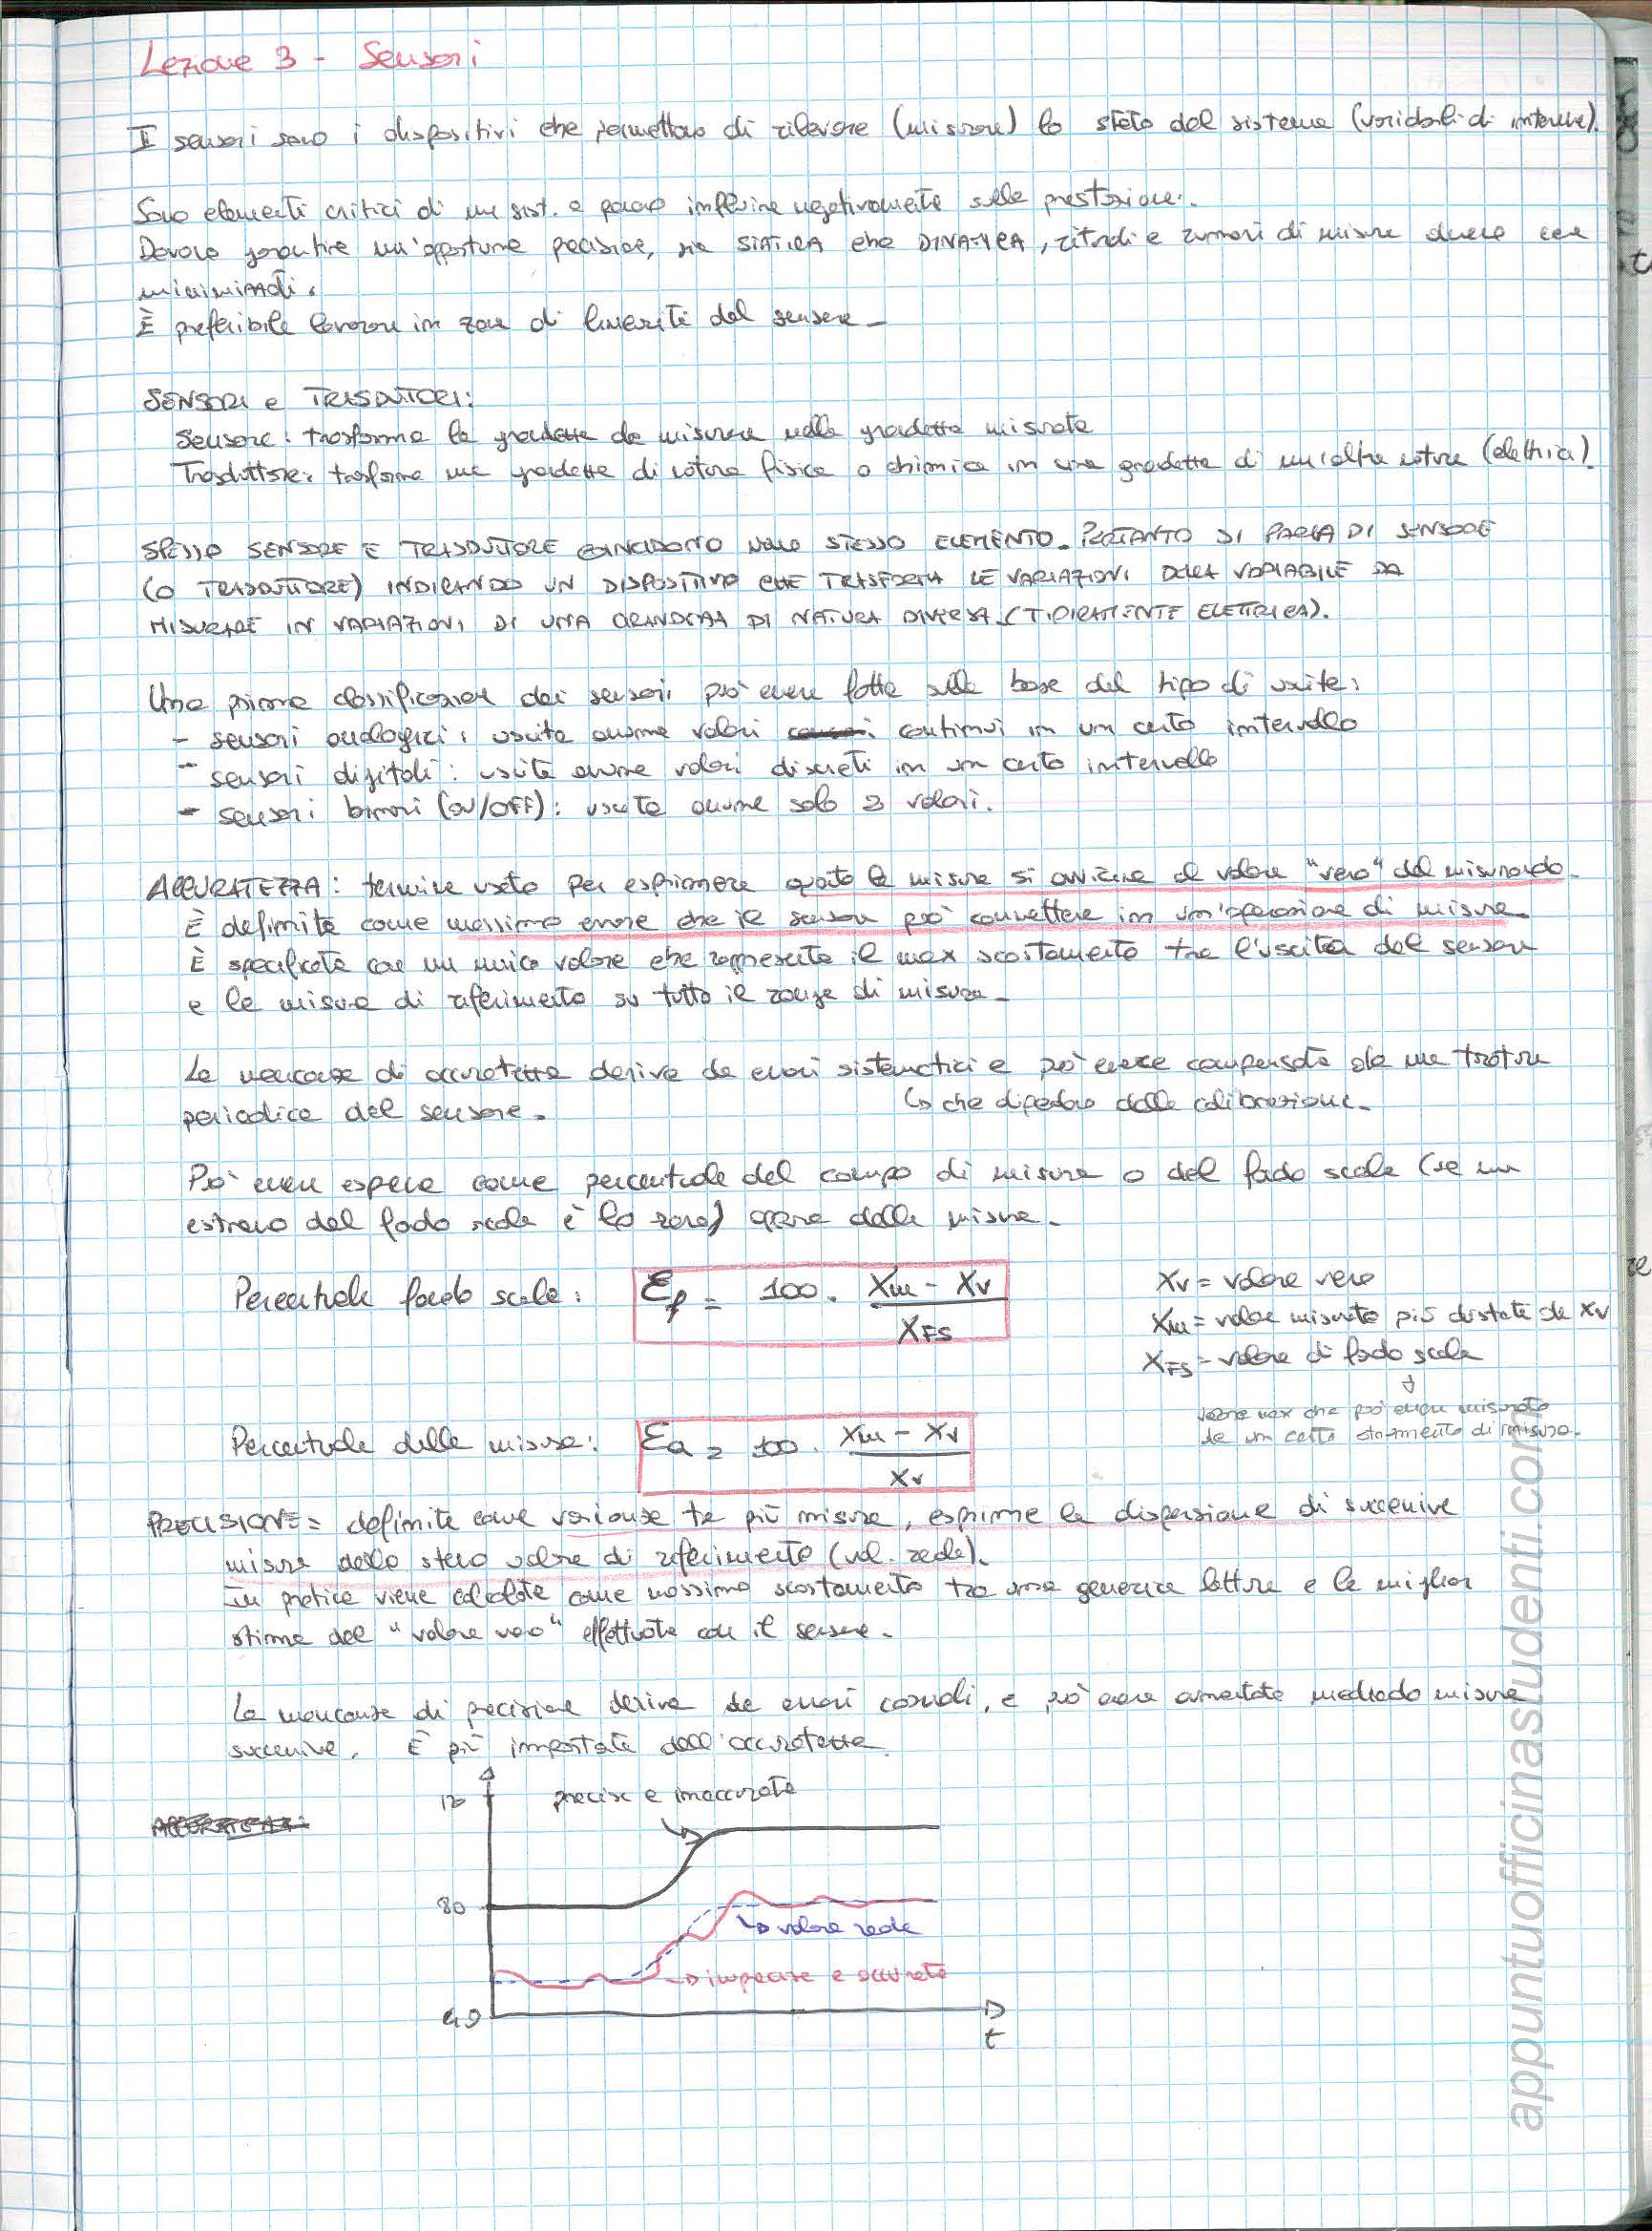 Lezione 3 - Sensori
I sensori sono i dispositivi che permettono di rilevare (misurare) lo stato del sistema (variabili di interesse).
Sono elementi critici di un sist. e possono influire negativamente sulle prestazioni.
Devono garantire un'opportuna precisione, sia STATICA che DINAMICA, ritardi e rumori di misura devono essere
minimizzati.
È preferibile lavorare in zone di linearità del sensore -
SENSORI e TRASDUTTORI:
Sensore: trasforma la grandezza da misurare nella grandezza misurata
Trasduttore: trasforma una grandezza di natura fisica o chimica in una grandezza di un'altra natura (elettrica).
SPESSO SENSORE E TRASDUTTORE COINCIDONO NELLO STESSO ELEMENTO. PERTANTO SI PARLA DI SENSORE
(O TRASDUTTORE) INDICANDO UN DISPOSITIVO CHE TRASFORMA LE VARIAZIONI DELLA VARIABILE DA
MISURARE IN VARIAZIONI DI UNA GRANDEZZA DI NATURA DIVERSA (TIPICAMENTE ELETTRICA).
Una prima classificazione dei sensori può essere fatta sulla base del tipo di uscita:
- sensori analogici: uscita assume valori continui in un certo intervallo
- sensori digitali: uscita assume valori discreti in un certo intervallo
- sensori binari (ON/OFF): uscita assume solo 2 valori.
ACCURATEZZA: termine usato per esprimere quanto la misura si avvicina al valore "vero" del misurando.
È definita come massimo errore che il sensore può commettere in un'operazione di misura
È specificata con un unico valore che rappresenta il max scostamento tra l'uscita del sensore
e la misura di riferimento su tutto il range di misura -
La mancanza di accuratezza deriva da errori sistematici e può essere compensata da una taratura
periodica del sensore. ↳ che dipendono dalla calibrazione.
Può essere espressa come percentuale del campo di misura o del fondo scala (se un
estremo del fondo scala è lo zero) oppure della misura.
Percentuale fondo scala: εf = 100 · (Xm - Xv) / XFS
Xv = valore vero
Xm = valore misurato più distante da Xv
XFS = valore di fondo scala
↓
valore max che può essere misurato
da un certo strumento di misura.
Percentuale della misura: εa = 100 · (Xm - Xv) / Xv
PRECISIONE = definita come varianza tra più misure, esprime la dispersione di successive
misure dello stesso valore di riferimento (val. reale).
In pratica viene calcolata come massimo scostamento tra una generica lettura e la miglior
stima del "valore vero" effettuata con il sensore.
La mancanza di precisione deriva da errori casuali, e può essere aumentata mediando misure
successive. È più importante dell'accuratezza.
120
precisa e inaccurata
80
↳ valore reale
→ imprecisa e accurata
40
t
appuntuofficinastudenti.com